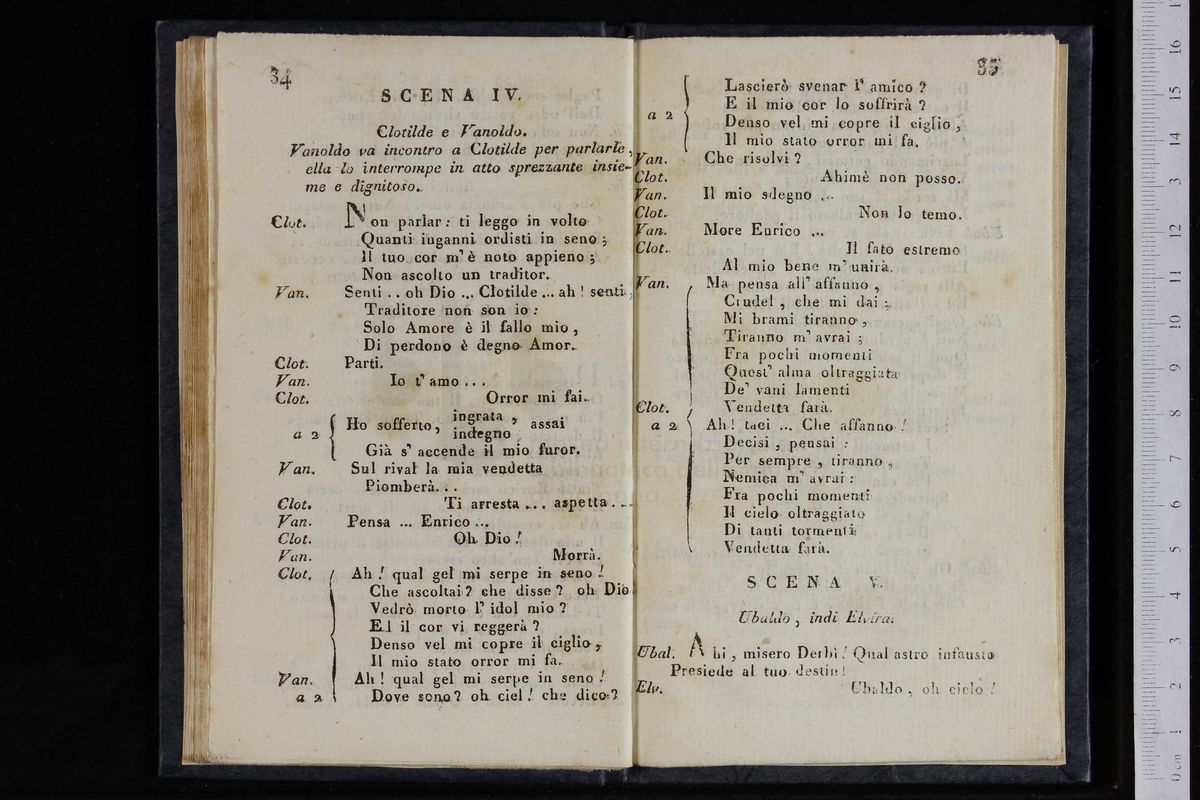 34
SCENA IV.
Clotilde e Vanoldo.
Vanoldo va incontro a Clotilde per parlarle,
ella lo interrompe in atto sprezzante insie-
me e dignitoso.
Clot. Non parlar: ti leggo in volto
Quanti inganni ordisti in seno;
Il tuo cor m'è noto appieno;
Non ascolto un traditor.
Van. Senti .. oh Dio ... Clotilde ... ah! senti,
Traditore non son io:
Solo Amore è il fallo mio,
Di perdono è degno Amor.
Clot. Parti.
Van. Io t'amo ...
Clot. Orror mi fai.
a 2 Ho sofferto, ingrata, indegno, assai
Già s'accende il mio furor.
Van. Sul rival la mia vendetta
Piomberà...
Clot. Ti arresta ... aspetta...
Van. Pensa ... Enrico ...
Clot. Oh Dio!
Van. Morrà.
Clot. Ah! qual gel mi serpe in seno!
Che ascoltai? che disse? oh Dio
Vedrò morto l'idol mio?
E il cor vi reggerà?
Denso vel mi copre il ciglio,
Il mio stato orror mi fa.
Van. Ah! qual gel mi serpe in seno!
a 2 Dove sono? oh ciel! che dico?
35
Lascierò svenar l'amico?
E il mio cor lo soffrirà?
a 2 Denso vel mi copre il ciglio,
Il mio stato orror mi fa.
Van. Che risolvi?
Clot. Ahimè non posso.
Van. Il mio sdegno ...
Clot. Non lo temo.
Van. More Enrico ...
Clot. Il fato estremo
Al mio bene m'unirà.
Van. Ma pensa all'affanno,
Crudel, che mi dai;
Mi brami tiranno,
Tiranno m'avrai;
Fra pochi momenti
Quest'alma oltraggiata
De' vani lamenti
Vendetta farà.
Clot.
a 2 Ah! taci ... Che affanno!
Decisi, pensai:
Per sempre, tiranno,
Nemica m'avrai:
Fra pochi momenti
Il cielo oltraggiato
Di tanti tormenti
Vendetta farà.
SCENA V.
Ubaldo, indi Elvira.
Ubal. Ahi, misero Derbì! Qual astro infausto
Presiede al tuo destin!
Elv. Ubaldo, oh cielo!
0 cm 1 2 3 4 5 6 7 8 9 10 11 12 13 14 15 16